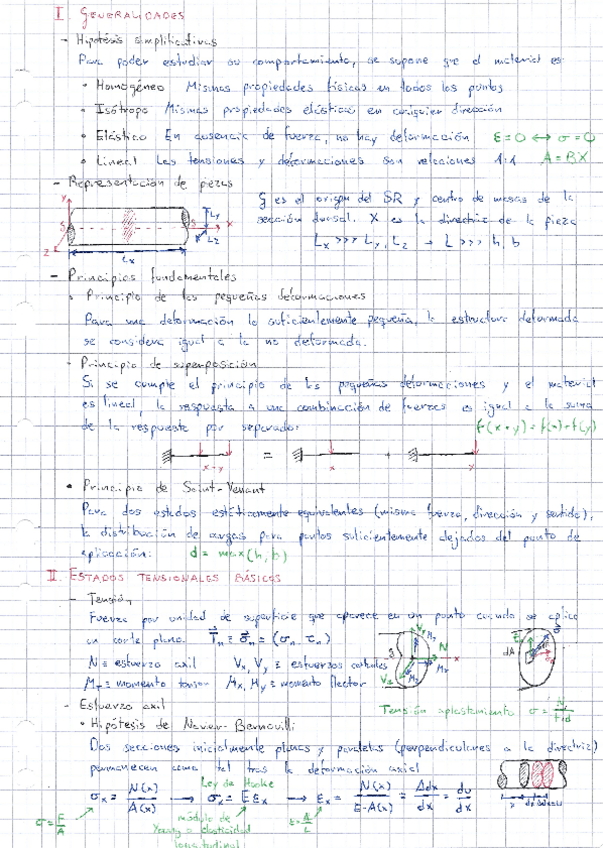 I. GENERALIDADES
- Hipótesis simplificativas
Para poder estudiar su comportamiento, se supone que el material es:
• Homogéneo Mismas propiedades físicas en todos los puntos
• Isótropo Mismas propiedades elásticas en cualquier dirección
• Elástico En ausencia de fuerza, no hay deformación ε=0 ↔ σ=0
• Lineal Las tensiones y deformaciones son relaciones 1:1 A=B·X
- Representación de piezas
G es el origen del SR y centro de masas de la
sección dorsal. X es la directriz de la pieza
Lx >>> Ly, Lz → L >>> h, b
y
S
S
x
z
Ly
Lz
Lx
- Principios fundamentales
• Principio de las pequeñas deformaciones
Para una deformación lo suficientemente pequeña, la estructura deformada
se considera igual a la no deformada.
- Principio de superposición
Si se cumple el principio de las pequeñas deformaciones y el material
es lineal, la respuesta a una combinación de fuerzas es igual a la suma
de la respuesta por separado: f(x+y)=f(x)+f(y)
x+y = x + x
• Principio de Saint-Venant
Para dos estados estáticamente equivalentes (misma fuerza, dirección y sentido),
la distribución de cargas para puntos suficientemente alejados del punto de
aplicación: d = max(h,b)
II. ESTADOS TENSIONALES BÁSICOS
- Tensión
Fuerza por unidad de superficie que aparece en un punto cuando se aplica
un corte plano. Tn ≡ σn = (σn, τn)
N ≡ esfuerzo axil Vx, Vy ≡ esfuerzos cortantes
MT ≡ momento torsor Mx, My ≡ momento flector
N
x
dA
- Esfuerzo axil Tensión aplastamiento σ =
• Hipótesis de Navier-Bernouilli
Dos secciones inicialmente planas y paralelas (perpendiculares a la directriz)
permanecen como tal tras la deformación axial
Ley de Hooke
σx = N(x)/A(x) → σx = E εx → εx = N(x)/E·A(x) = Δdx/dx = du/dx
σ=F/A
módulo de
Young o elasticidad
longitudinal